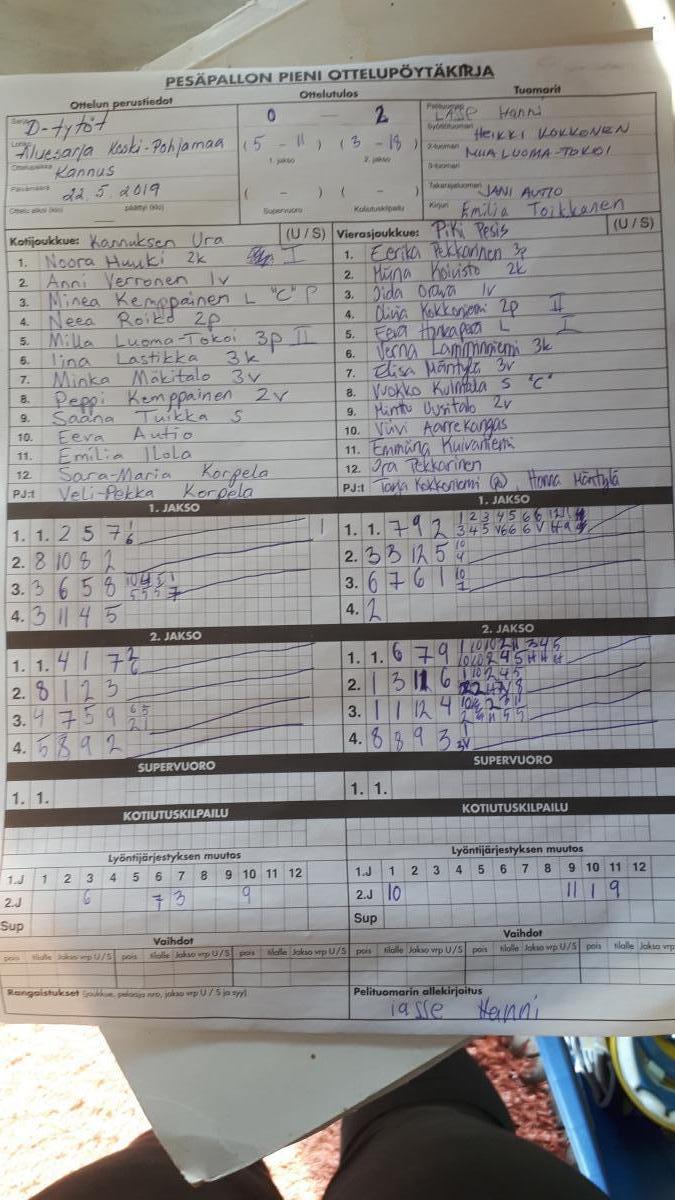 PESÄPALLON PIENI OTTELUPÖYTÄKIRJA
Ottelun perustiedot
Ottelutulos
Tuomarit
Sarja D-tytöt
Aluesarja Keski-Pohjamaa
Ottelupaikka Kannus
Päivämäärä 22.5.2019
Ottelu alkoi (klo) päättyi (klo)
0 — 2
(5 - 11) (3 - 18)
1. jakso 2. jakso
( - ) ( - )
Supervuoro Kotiutuskilpailu
Pelituomari Lasse Hanni
Syöttötuomari HEIKKI KOKKONEN
2-tuomari MIIA LUOMA-TOKOI
3-tuomari
Takarajatuomari JANI AUTIO
Kirjuri Emilia Toikkanen
Kotijoukkue: Kannuksen Ura (U / S)
1. Noora Huuki 2k I
2. Anni Verronen 1v
3. Minea Kemppainen L "C" P
4. Neea Roiko 2p
5. Milla Luoma-Tokoi 3p II
6. Iina Lastikka 3k
7. Minka Mäkitalo 3v
8. Peppi Kemppainen 2v
9. Saana Tuikka S
10. Eeva Autio
11. Emilia Ilola
12. Sara-Maria Korpela
PJ:t Veli-Pekka Korpela
Vierasjoukkue: PiKi Pesis (U / S)
1. Eerika Pekkarinen 3p
2. Miina Koivisto 2k
3. Iida 1v
4. Olivia Kokkoniemi 2p II
5. Eeva L I
6. Verna Lamminniemi 3k
7. Elisa Mäntylä 3v
8. Vuokko Kulmala S "C"
9. Minttu Uusitalo 2v
10. Viivi Aarrekangas
11. Emmiina Kuivaniemi
12. Pekkarinen
PJ:t Tarja Kokkoniemi Hanna Mäntylä
1. JAKSO
1. 1. 2 5 7 1 6
2. 8 10 8 2
3. 3 6 5 8
4. 3 11 4 5
2. JAKSO
1. 1. 4 1 7 2 6
2. 8 1 2 3
3. 4 7 5 9 6 5 2 1
4. 5 8 9 2
SUPERVUORO
1. 1.
KOTIUTUSKILPAILU
Lyöntijärjestyksen muutos
1.J 1 2 3 4 5 6 7 8 9 10 11 12
2.J 6 7 3 9
Sup
Vaihdot
pois tilalle Jakso vrp U / S pois tilalle Jakso vrp U / S pois tilalle Jakso vrp U / S
Rangaistukset (joukkue, pelaaja nro, jakso vrp U / S ja syy)
1. JAKSO
1. 1. 7 9 2
2. 3 3 12 5 10 4
3. 6 7 6 1 10 7
4. 2
2. JAKSO
1. 1. 6 7 9
2. 1 3 11 6
3. 1 1 12 4
4. 8 8 9 3
SUPERVUORO
1. 1.
KOTIUTUSKILPAILU
Lyöntijärjestyksen muutos
1.J 1 2 3 4 5 6 7 8 9 10 11 12
2.J 10 11 1 9
Sup
Vaihdot
pois tilalle Jakso vrp U / S pois tilalle Jakso vrp U / S pois tilalle Jakso vrp
Pelituomarin allekirjoitus
Lasse Hanni